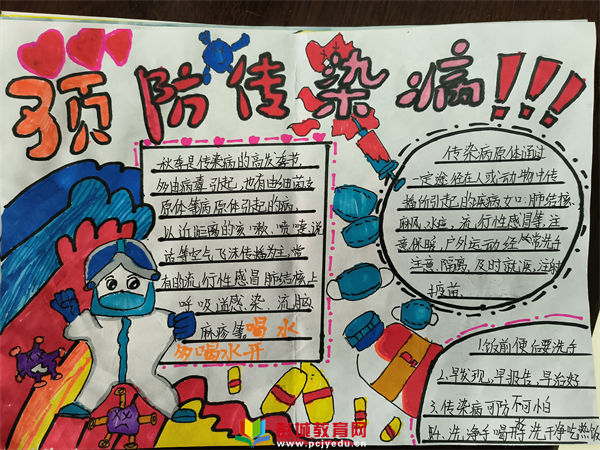 预防传染病!!!
秋季是传染病的高发季节
多由病毒引起,也有由细菌支
原体等病原体引起的病,
以近距离的咳嗽、喷嚏、说
话等空气飞沫传播为主,常
有的流行性感冒肺结核上
呼吸道感染、流脑
麻疹等。喝水
多喝水开
传染病原体通过
一定途径在人或动物中传
播所引起的疾病如:肺结核、
麻风、水痘、流行性感冒等,注
意保暖,户外运动,经常洗手
注意隔离,及时就诊,注射
疫苗。
1.饭前便后要洗手
2.早发现,早报告,早治好
3.传染病可防不可怕
洗净手喝开洗干净吃热饭
教育网
www.pcjyedu.cn